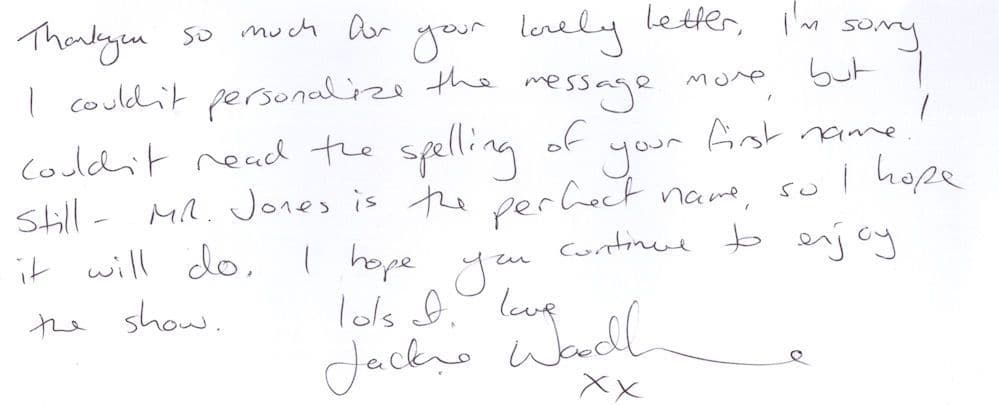 Thankyou so much for your lovely letter. I'm sorry
I couldn't personalize the message more, but I
couldn't read the spelling of your first name!
Still – MR. Jones is the perfect name, so I hope
it will do. I hope you continue to enjoy
the show. lots of love
Jackie
xx